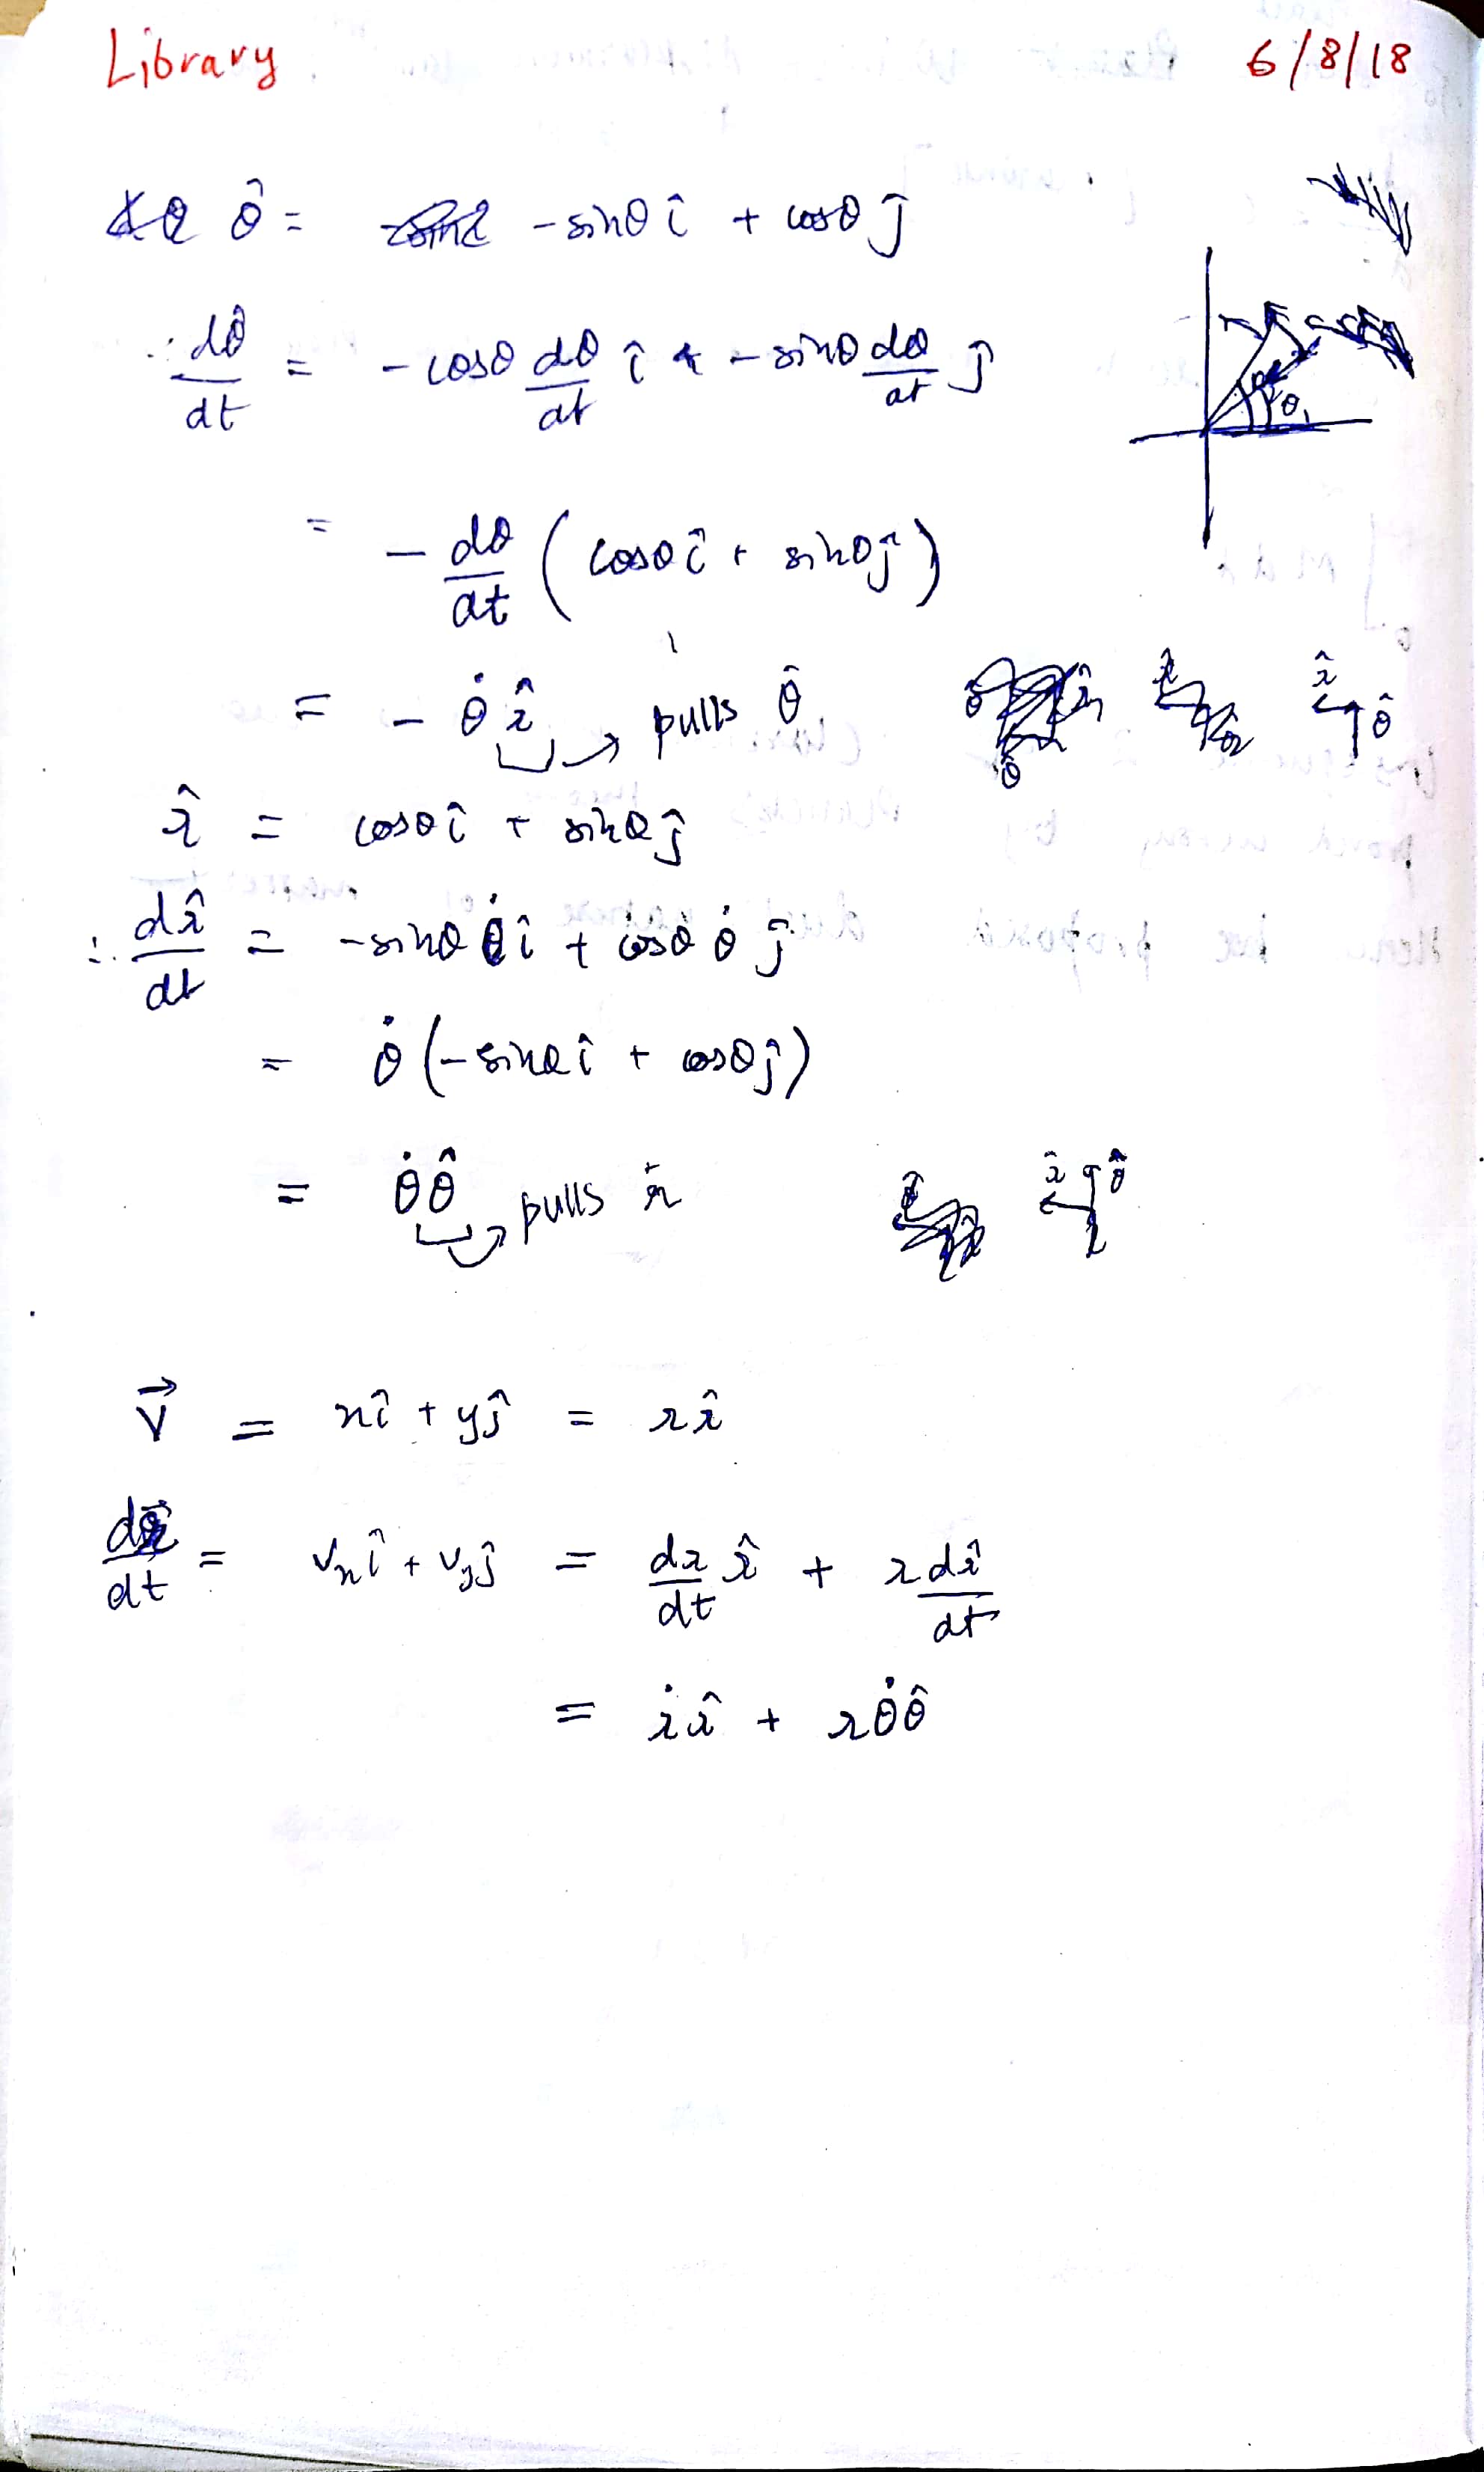 Library 6/8/18
θ̂ = -sinθ î + cosθ ĵ
∴ dθ̂/dt = -cosθ dθ/dt î + -sinθ dθ/dt ĵ
θ
= - dθ/dt (cosθ î + sinθ ĵ)
= - θ̇ r̂ → pulls θ̂. r̂ θ̂
r̂ = cosθ î + sinθ ĵ
∴ dr̂/dt = -sinθ θ̇ î + cosθ θ̇ ĵ
= θ̇ (-sinθ î + cosθ ĵ)
= θ̇ θ̂ → pulls r̂ r̂ θ̂
V⃗ = xî + yĵ = r r̂
dr⃗/dt = vₓ î + v_y ĵ = dr/dt r̂ + r dr̂/dt
= ṙ r̂ + r θ̇ θ̂